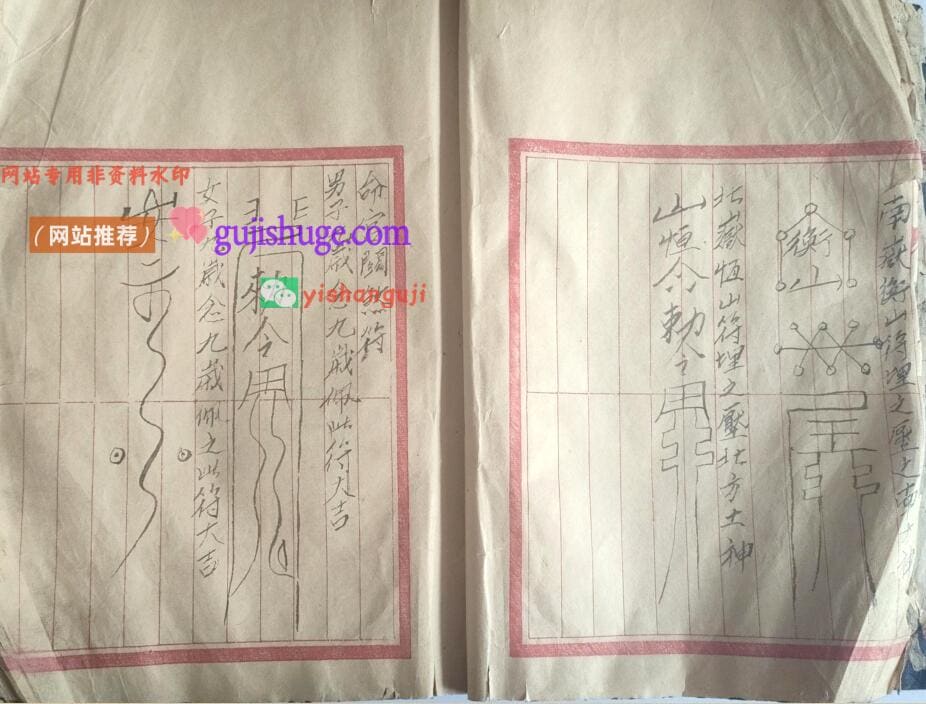 南嶽衡山符埋之壓
衡山
北嶽恆山符埋之壓北方土神
山恆令勅令
命宮關煞符
男子歲忿九歲佩此符大吉
日
勅令
女子歲忿九歲佩之此符大吉
网站专用非资料水印
(网站推荐)
gujishuge.com
yishanguji